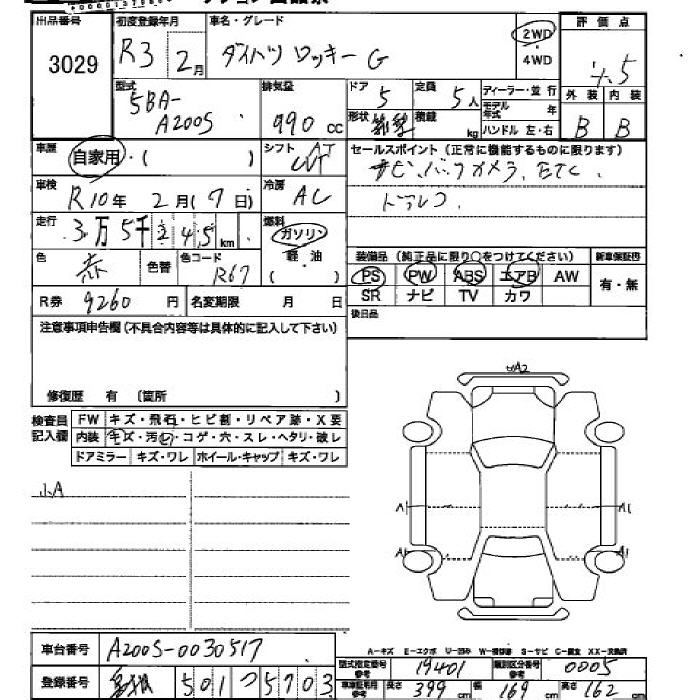 出品番号 初度登録年月 車名・グレード 評価点
3029 R3 2月 ダイハツ ロッキー G 2WD ・ 4WD 4.5
型式 排気量 ドア 定員 ディーラー・並行 外装 内装
5BA-A200S 990cc 5 5人 モデル年式 年
形状 積載 kg ハンドル 左・右 B B
車歴 自家用・( ) シフト AT CVT セールスポイント(正常に機能するものに限ります)
ナビ、バックカメラ、ETC、
車検 R10年 2月(7日) 冷房 AC ドラレコ.
走行 3万5千245km 燃料 ガソリン 軽油 ( )
色 赤 色替 色コード R67 装備品(純正品に限り○をつけてください) 新車保証書
PS PW ABS エアB AW 有・無
R券 9260円 名変期限 月 日 SR ナビ TV カワ
注意事項申告欄(不具合内容等は具体的に記入して下さい) 後日品
修復歴 有 〔箇所 〕
検査員記入欄 FW キズ・飛石・ヒビ割・リペア跡・X要
内装 キズ・汚れ・コゲ・穴・スレ・ヘタリ・破レ
ドアミラー キズ・ワレ ホイール・キャップ キズ・ワレ
A2
小A
A1 A1
A1 A1
車台番号 A200S-0030517
A-キズ E-エクボ U-凹み W-補修跡 S-サビ C-腐食 XX-交換済
型式指定番号 参考 19401 類別区分番号 参考 0005
登録番号 島根 501 つ 5703 車車証用 参考 長さ 399cm 幅 169cm 高さ 162cm